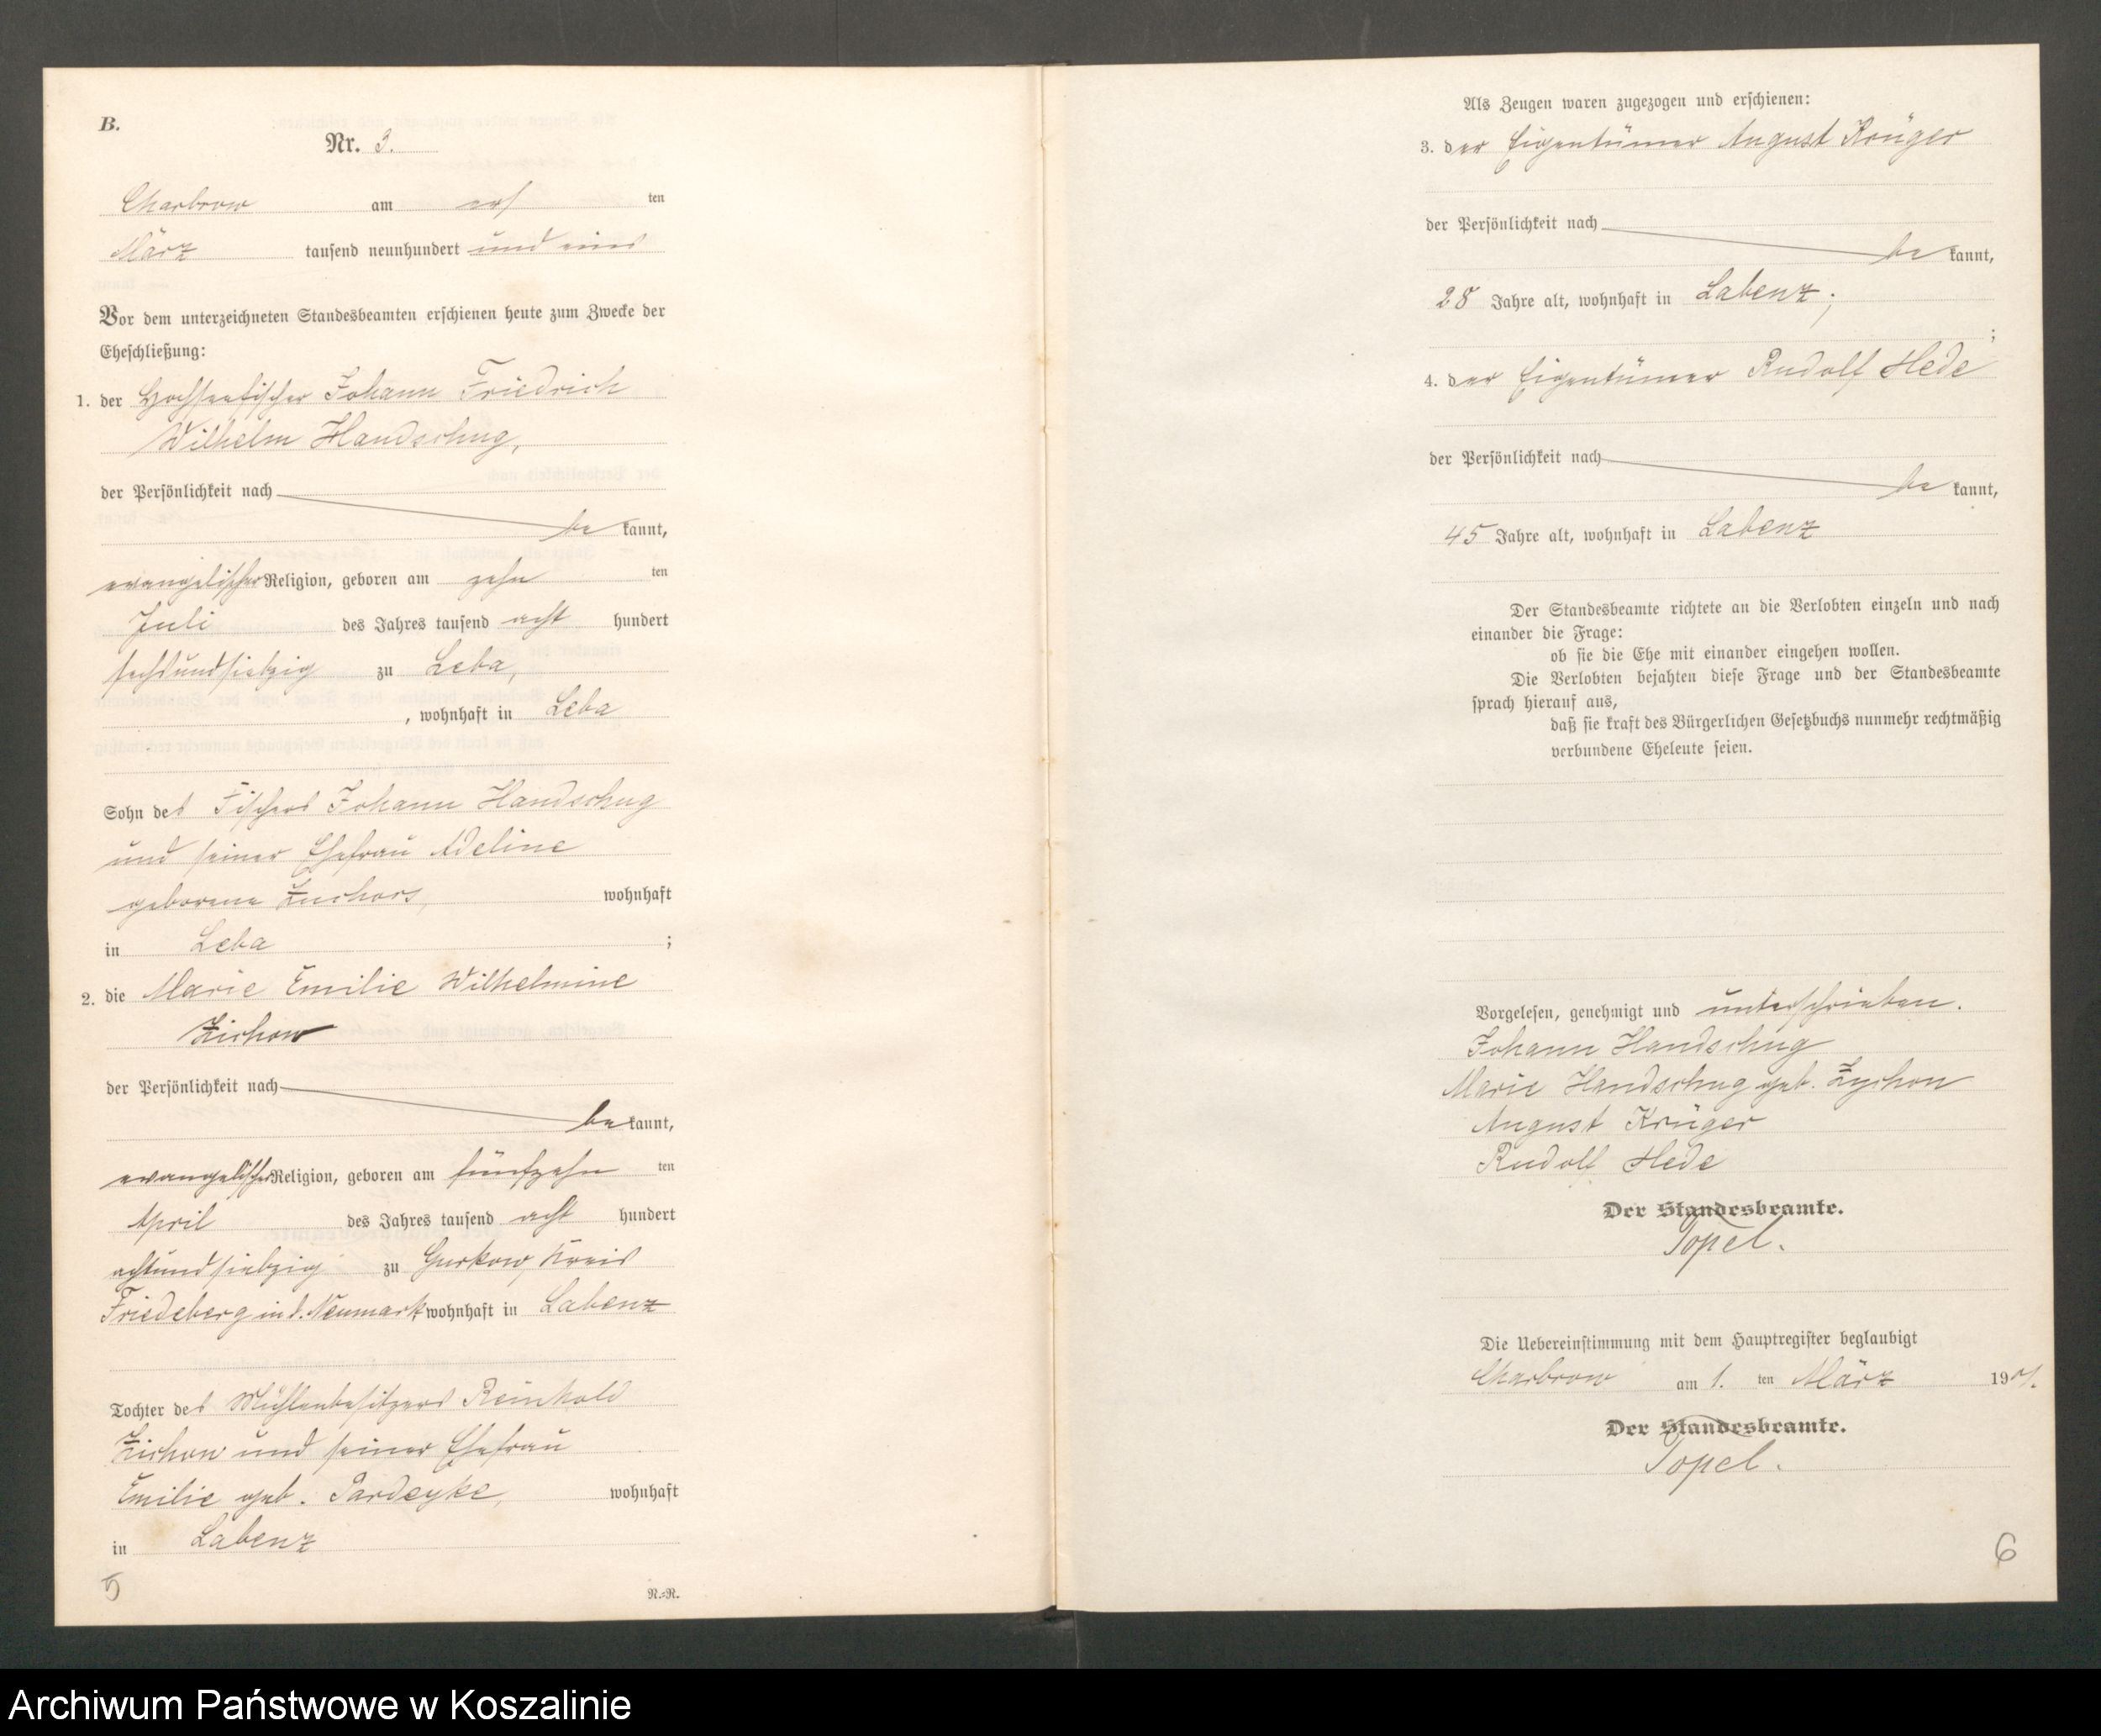 B.
Nr. 3.
Charbrow am erf ten
März tausend neunhundert und eins
Vor dem unterzeichneten Standesbeamten erschienen heute zum Zwecke der
Eheschließung:
1. der Hochseefischer Johann Friedrich
Wilhelm Handschug,
der Persönlichkeit nach
be kannt,
evangelischer Religion, geboren am zehn ten
Juli des Jahres tausend acht hundert
sechsundsiebzig zu Leba,
, wohnhaft in Leba
Sohn des Fischers Johann Handschug
und seiner Ehefrau Adeline
geborene Zuchors, wohnhaft
in Leba ;
2. die Marie Emilie Wilhelmine
Zichow
der Persönlichkeit nach
be kannt,
evangelischer Religion, geboren am fünfzehn ten
April des Jahres tausend acht hundert
achtundsiebzig zu Gurkow, Kreis
Friedeberg in d. Neumark, wohnhaft in Labenz
Tochter des Mühlenbesitzers Reinhold
Zichow und seiner Ehefrau
Emilie geb. Pardeyke, wohnhaft
in Labenz
5
R.=R.
Als Zeugen waren zugezogen und erschienen:
3. der Eigentümer August Krüger
der Persönlichkeit nach
be kannt,
28 Jahre alt, wohnhaft in Labenz;
;
4. der Eigentümer Rudolf Hede
der Persönlichkeit nach
be kannt,
45 Jahre alt, wohnhaft in Labenz
Der Standesbeamte richtete an die Verlobten einzeln und nach
einander die Frage:
ob sie die Ehe mit einander eingehen wollen.
Die Verlobten bejahten diese Frage und der Standesbeamte
sprach hierauf aus,
daß sie kraft des Bürgerlichen Gesetzbuchs nunmehr rechtmäßig
verbundene Eheleute seien.
Vorgelesen, genehmigt und unterschrieben.
Johann Handschug
Marie Handschug geb. Zychow
August Krüger
Rudolf Hede
Der Standesbeamte.
Topel.
Die Uebereinstimmung mit dem Hauptregister beglaubigt
Charbrow am 1. ten März 1901.
Der Standesbeamte.
Topel.
6
Archiwum Państwowe w Koszalinie